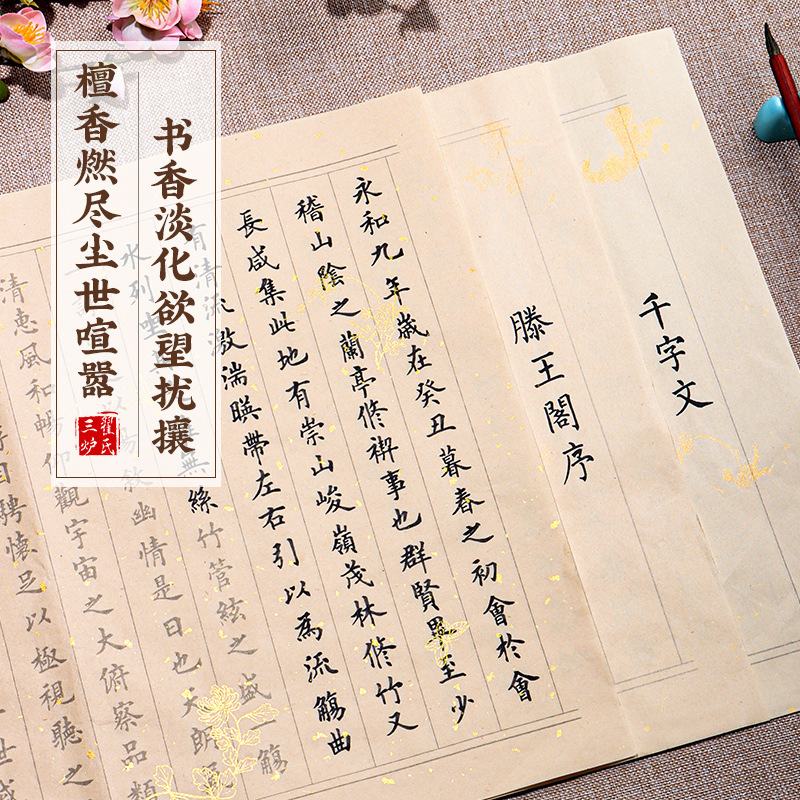 书香淡化欲望扰攘
檀香燃尽尘世喧嚣
翟氏
三炉
千字文
滕王閣序
永和九年歲在癸丑暮春之初會於會
稽山陰之蘭亭修禊事也群賢畢至少
長咸集此地有崇山峻嶺茂林修竹又
有清流激湍暎帶左右引以為流觴曲
水列坐其無絲竹管絃之盛一觴
以暢敘幽情是日也天朗
清惠風和暢仰觀宇宙之大俯察品類
目騁懷足以極視聽之
世或